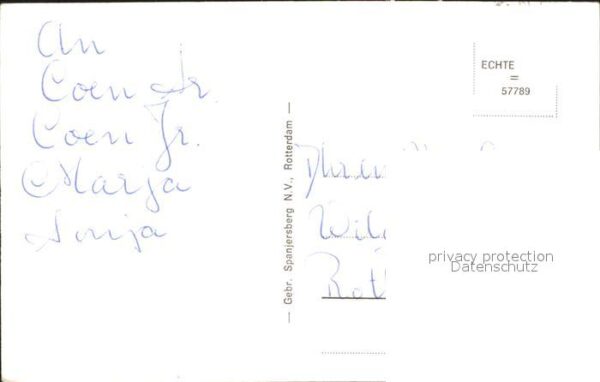 An
Coen Sr.
Coen Jr.
Marja
Sonja
— Gebr. Spanjersberg N.V., Rotterdam —
ECHTE
=
57789
privacy protection
Datenschutz